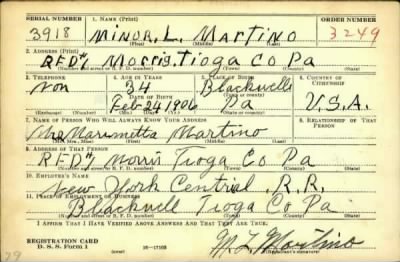 SERIAL NUMBER 1. NAME (Print) ORDER NUMBER
3918 MINOR, L. MARTINO 3249
(First) (Middle) (Last)
2. ADDRESS (Print)
RFD#1 Morris, Tioga Co Pa
(Number and street or R. F. D. number) (Town) (County) (State)
3. TELEPHONE 4. AGE IN YEARS 5. PLACE OF BIRTH 6. COUNTRY OF CITIZENSHIP
Non 34 Blackwells
DATE OF BIRTH (Town or county)
Feb-24 1906 Pa U.S.A.
(Mo.) (Day) (Yr.) (State or country)
7. NAME OF PERSON WHO WILL ALWAYS KNOW YOUR ADDRESS 8. RELATIONSHIP OF THAT PERSON
Mrs Martino
(Mr., Mrs., Miss) (First) (Middle) (Last)
9. ADDRESS OF THAT PERSON
RFD#1 Morris Tioga Co Pa
(Number and street or R. F. D. number) (Town) (County) (State)
10. EMPLOYER'S NAME
New York Central, R.R.
11. PLACE OF EMPLOYMENT OR BUSINESS
Blackwell Tioga Co Pa
(Number and street or R. F. D. number) (Town) (County) (State)
I AFFIRM THAT I HAVE VERIFIED ABOVE ANSWERS AND THAT THEY ARE TRUE.
REGISTRATION CARD
D. S. S. Form 1 (over) 16—17105 M L Martino